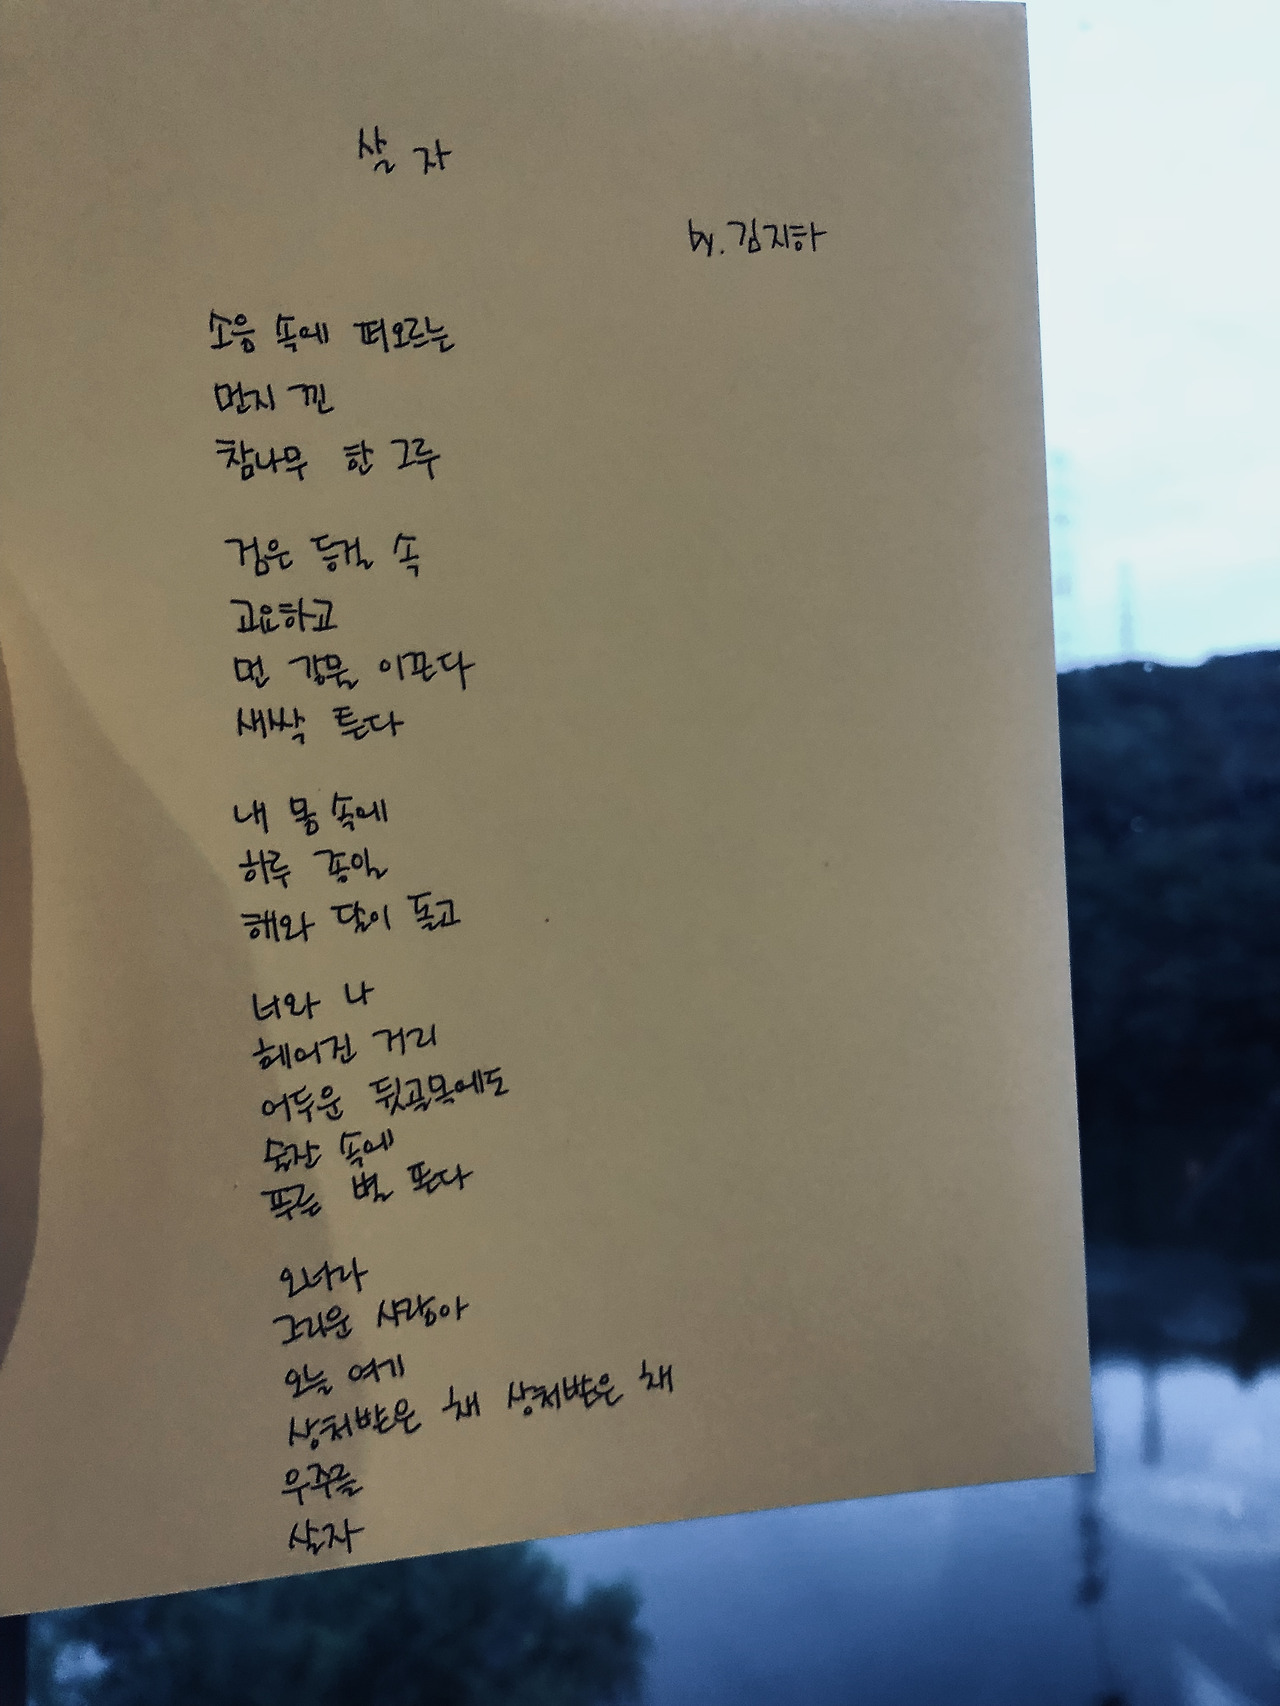 살자
by. 김지하
소음 속에 떠오르는
먼지 낀
참나무 한 그루
검은 등걸 속
고요하고
먼 강물 이끈다
새싹 튼다
내 몸 속에
하루 종일
해와 달이 돌고
너와 나
헤어진 거리
어두운 뒷골목에도
술잔 속에
푸른 별 뜬다
오너라
그리운 사람아
오늘 여기
상처받은 채 상처받은 채
우주를
살자